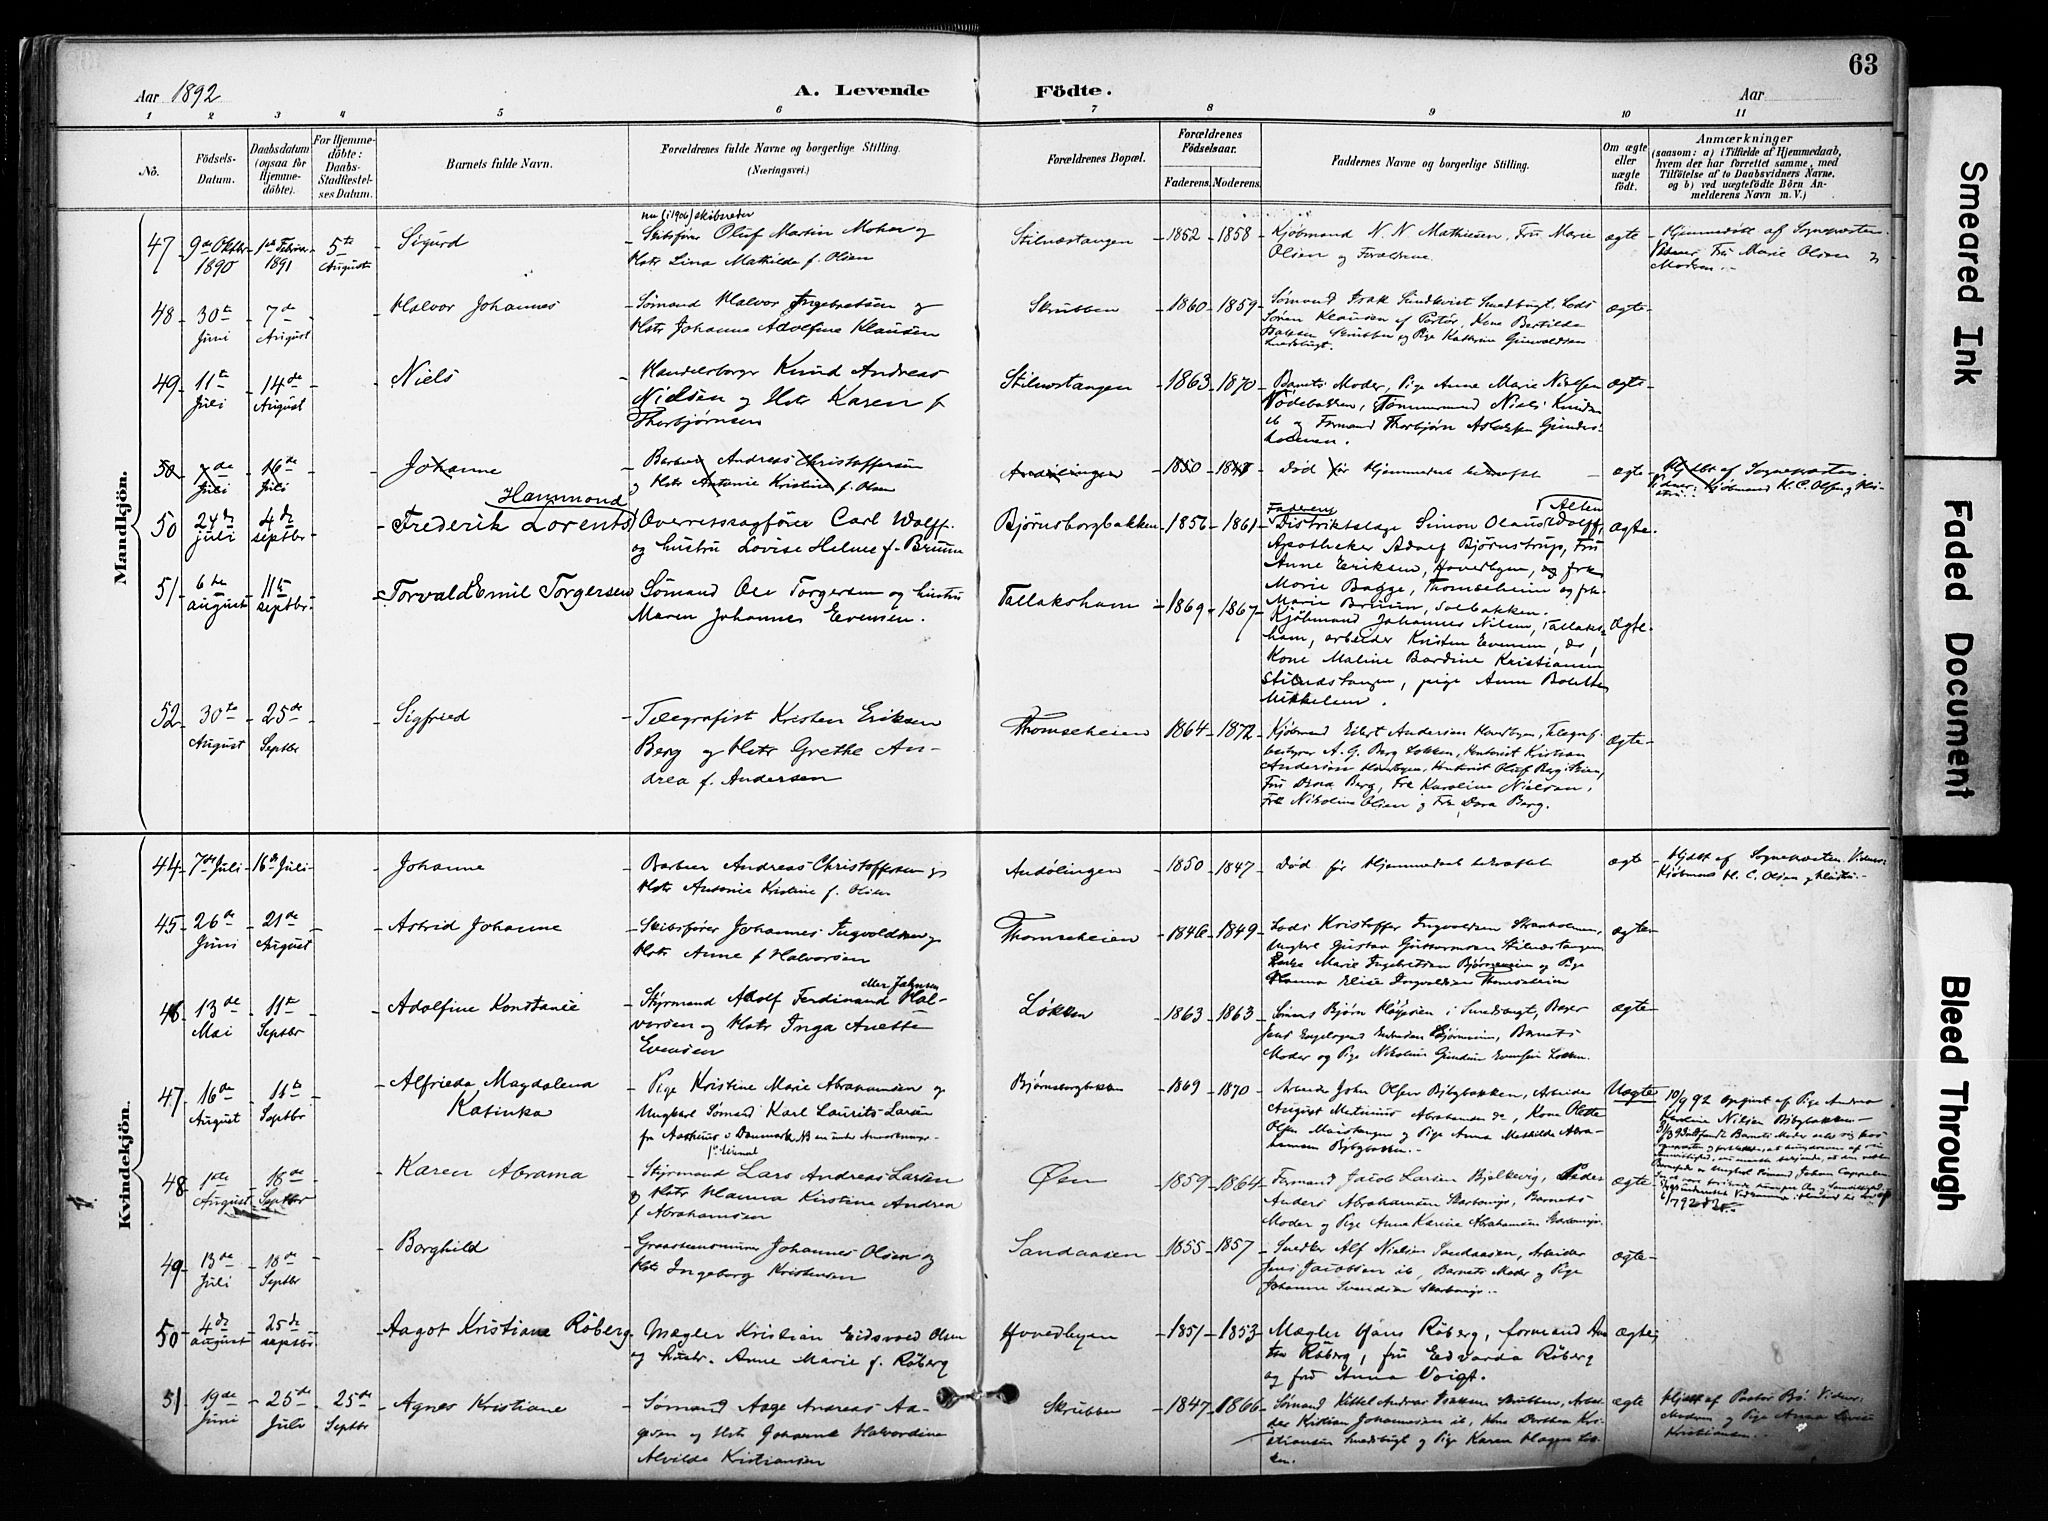 63
Aar 1892
A. Levende Födte.
Aar
1 2 3 4 5 6 7 8 9 10 11
No.
Födsels-Datum.
Daabsdatum (ogsaa for Hjemmedöbte).
For Hjemmedöbte: Daabs-Stadfæstelses Datum.
Barnets fulde Navn.
Forældrenes fulde Navne og borgerlige Stilling. (Næringsvei.)
Forældrenes Bopæl.
Forældrenes Födselsaar.
Faderens. Moderens.
Faddernes Navne og borgerlige Stilling.
Om ægte eller uægte födt.
Anmærkninger (saasom: a) i Tilfælde af Hjemmedaab, hvem der har forrettet samme, med Tilföielse af to Daabsvidners Navne, og b) ved uægtefödte Börn Anmelderens Navn m. V.)
Mandkjön.
nu (i 1906) skibsreder
47 9de Oktbr 1890 1ste Februar 1891 5te August Sigurd Skibsfører Oluf Martin Moher og Hstr Lina Mathilde f. Olsen Stilnæstangen 1852 1858 Kjøbmand N. N Mathiesen, Fru Marie Olsen og Forældrene ægte Hjemmedøbt af Sognepræsten. Vidner Fru Marie Olsen og Moderen
48 30te Juni 7de August Halvor Johannes Sømand Halvor Ingebretsen og Hstr Johanne Adolfine Klausen Skrubben 1860 1859 Sømand Isak Sundkvist Smedbugt, Lods Søren Klausen af Portør, Kone Bertilde Skrubben og Pige Kathrine Smedsbugt. ægte
49 11te Juli 14de August Niels Handelsborger Knud Andreas Nielsen og Hstr Karen f Thorbjørnsen Stilnæstangen 1863 1870 Barnets Moder, Pige Anne Marie Nielsen Tømmermand Niels Knudsen ib og Formand Thorbjørn ægte
50 7de Juli 16de Juli Johanne Barber Andreas Christoffersen og Hstr Antonie Kristine f. Olsen Andølingen 1850 1847 Død før Hjemmedaab bekræftet ægte Hjdøbt af Sognepræsten. Vidner: Kjøbmand H. C. Olsen og Hustru
50 24de juli 4de septbr Frederik Hammond Lorentz Overretssagfører Carl Wolff og hustru Lovise Helene f. Bruun Bjørnsborgbakken 1856 1861 Faderen, Distriktslæge Simon Olaus Wolff, Alten Apotheker Adolf Bjørnstrup, Fru Anne Eriksen, Hovedbyen, og frk Marie Bagge, Thomseheien og frk. Marie Bruun, Solbakken. ægte
51 6te august 11te septbr. Torvald Emil Torgersen Sømand Ole Torgersen og hustru Maren Johannes Evensen. Tallakshavn 1869 1867 Kjøbmand Johannes Nilsen, Tallakshavn, arbeider Kristen Evensen, do, Kone Maline Bardine Kristiansen Stilnæstangen, pige Anne Bolette Mikkelsen. ægte
52 30te August 25de Septbr Sigfried Telegrafist Kristen Eriksen Berg og Hstr Grethe Andrea f. Andersen Thomseheien 1864 1872 Kjøbmand Eilert Andersen Hovedbyen, Telegrafbestyrer A. G. Berg Løkken, Kontorist Kristian Andersen Hovedbyen, Kontorist Oluf Berg Fru Berg, Frk Karoline Nielsen, Frk Nikoline Olsen og Frk Dora Berg. ægte
Kvindekjön.
44 7de Juli 16de Juli Johanne Barber Andreas Christoffersen og Hstr Antonie Kristine f. Olsen Andølingen 1850 1847 Død før Hjemmedaab bekræftet ægte Hjdøbt af Sognepræsten. Vidner: Kjøbmand H. C. Olsen og Hustru
45 26de Juni 21de August Astrid Johanne Skibsfører Johannes Ingvoldsen og Hstr Anne f Halvorsen Thomseheien 1846 1849 Lods Kristoffer Ingvoldsen Ungkarl Gustav Guttormsen Stilnæstangen Enke Marie Ingebretsen Bjørneveien og Pige Hanna Elise Ingvoldsen Thomseheien ægte
46 13de Mai 11te Septbr Adolfine Konstance Styrmand Adolf Ferdinand Halvorsen eller Johnsen og Hstr Inga Anette Evensen Løkken 1863 1863 Sømand Bjørn i Smedsbugt, Barnets Moder og Pige Nikoline Gundine Evensen Løkken. ægte
47 16de August 11te Septbr Alfrieda Magdalena Katinka Pige Kristine Marie Abrahamsen og Ungkarl Sømand Karl Laurits Larsen fra Aarhuus i Danmark NB en under Anmærkninger Bjørnsborgbakken 1869 1870 John Olsen Bjbgbakken, Arbeider August Matinius Abrahamsen do, Kone Olette Olsen og Pige Anna Mathilde Abrahamsen Bjbgbakken. Uægte 10/9 92 opgivet af Pige Andrea Nilsen Bjbgbakken
48 1ste August 18de Septbr Karen Abrama Styrmand Lars Andreas Larsen og Hstr Hanna Kirstine Andrea f Abrahamsen Øen 1859 1864 Formand Jacob Larsen Bjelkevig, Anders Abrahamsen Barnets Moder og Pige Anna Karine Abrahamsen ægte
49 13de Juli 18de Septbr Borghild Graastensmurer Johannes Olsen og Hstr Ingeborg Kristensen Sandaasen 1855 1857 Snedker Alf Nielsen Sandaasen, Arbeider Jens Jacobsen ib, Barnets Moder og Pige Johanne Svendsen ægte
50 4de august 25de septbr Aagot Kristiane Røberg Mægler Kristian Eidsvold Olsen og hustr. Anne Marie f. Røberg Hovedbyen 1851 1853 Mægler Hans Røberg, formand Anton Røberg, fru Edvarda Røberg og frø Anna Voigt. ægte
51 19de Juni 25de Juli 25de Septbr Agnes Kristiane Sømand Aage Andreas Aagesen og Hstr Johanne Halvordine Alvilde Kristiansen Skrubben 1847 1866 Sømand Kittel Andreas Isaksen Skrubben, Arbeider Kristian Johannesen ib, Kone Dorthea Kristiansen Smedsbugt og Pige Karen Løkken. ægte Hjdøbt af Pastor Bø. Vidner: Moderen og Pige Anna Lovise Kristiansen
Smeared Ink
Faded Document
Bleed Through